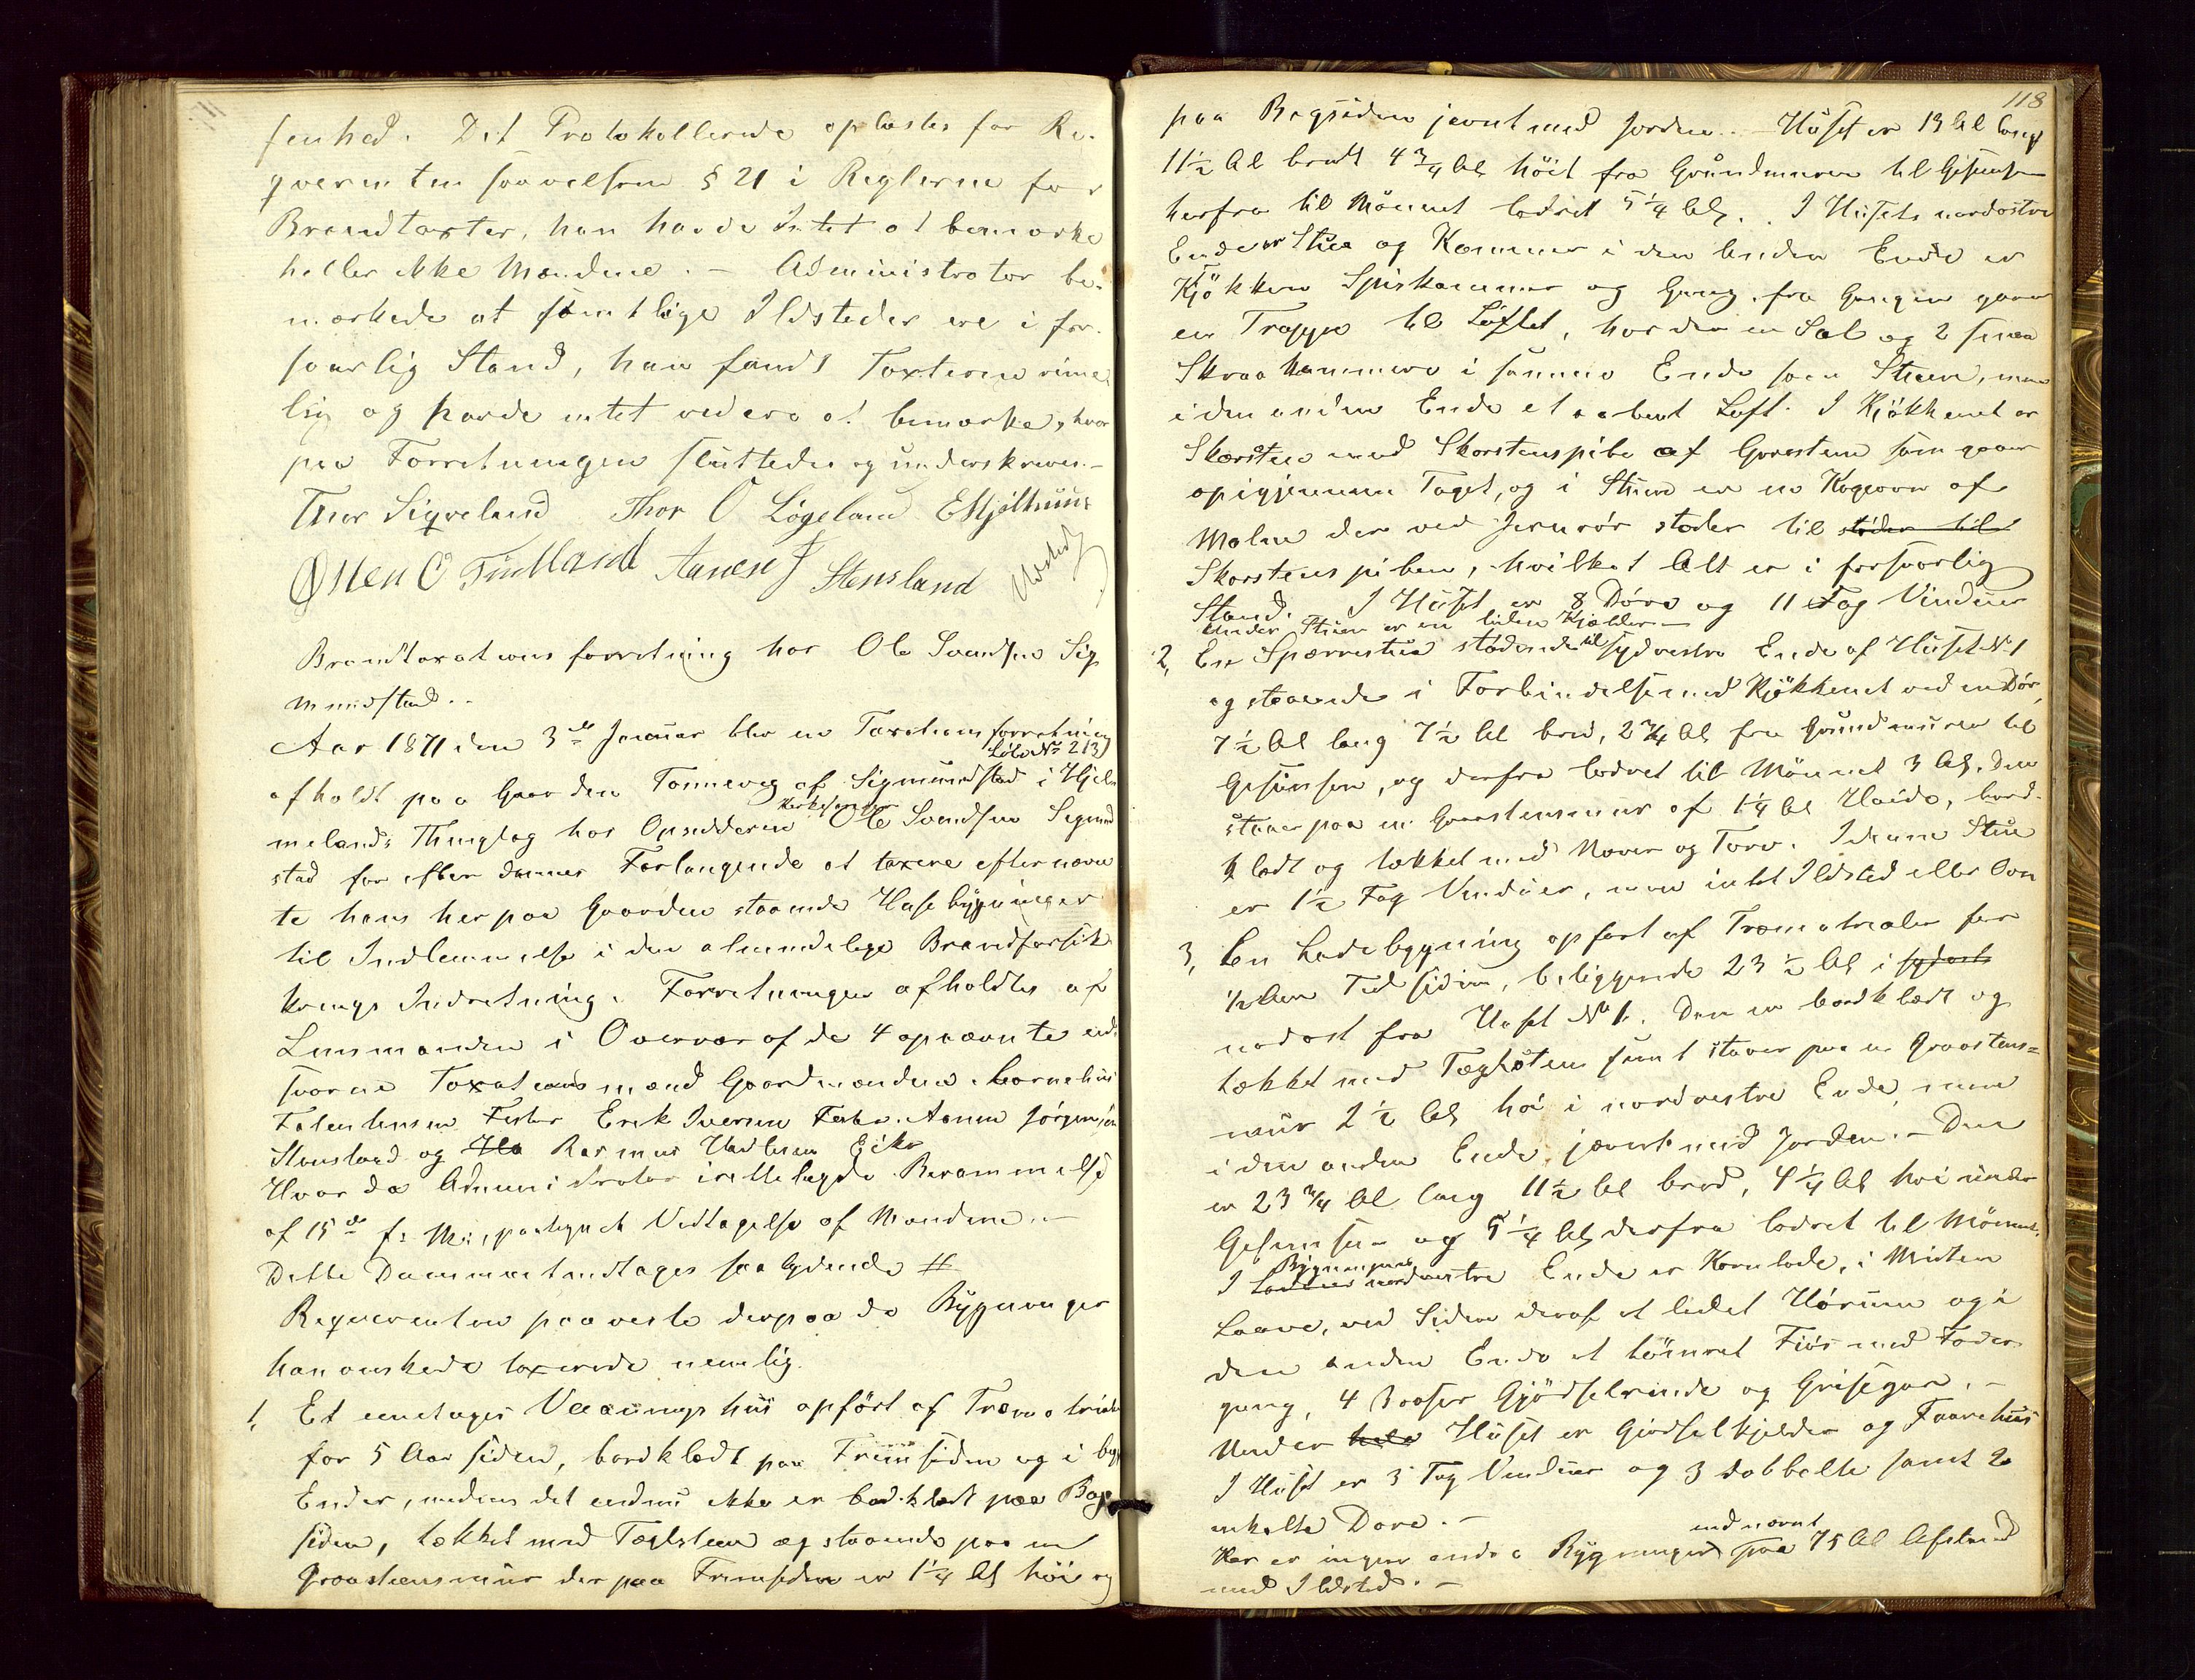 fenhed. Det Protokollerede oplæstes for Re-
qverenten saavelsom § 21 i Reglerne for
Brandtaxter, han havde Intet at bemærke
heller ikke Mændene. – Administrator be-
mærkede at samtlige Ildsteder ere i for-
svarlig Stand, han fandt Taxterne rime-
lig og havde intet videre at bemærke, hvor
paa Forretningen sluttedes og underskreven. –
Thor Siqveland Thor O Løgeland E Hjelthuus
Osten O Tindtland Aanen J Stensland
Brandtaxationsforretning hos Ole Svendsen Sig
mundstad. .
Aar 1871 den 3de Januar blev en Taxations forretning
Løbe No 213)
afholdt paa Gaarden Tonneveg af Sigmundstad i Hjel
melands Thinglag hos Opsidderen Ole Svendsen Sigmund
stad for efter dennes Forlangende at taxere efternævn
te hans her paa Gaarden staaende Husebygninger
til Indlemmelse i den almindelige Brandforsik-
krings Indretning. Forretningen afholdtes af
Lensmanden i Overvær af de 4 opnævnte ed-
svorne Taxationsmænd Gaardmændene Cornelius
Erik Iversen Aanen Jørgensen
Stensland og Rasmus Eike
Hvor da Administrator irettelagde Berammelse
af 15de f. M. paategnet Vedtagelse af Mændene. –
Dette Document indtages saalydende #
Reqverenten paaviste derpaa de Bygninger
han ønskede taxerede nemlig.
1, Et eenetages Vaaningshuus opført af Træmatrialer
for 5 Aar siden, bordklædt paa Fremsiden og i begge
Ender, medens det endnu ikke er bordklædt paa Bag
siden, tækket med Taglsteen og staaende paa en
Graasteensmuur der paa Fremsiden er 1¼ Al høi og
118
paa Bagsiden jevnt med Jorden. – Huset er 13 Al langt
11½ Al bredt 4¾ Al høit fra Grundmuren til Gesimsen
herfra til Mønnet lodret 5¼ Al. . I Husets nordostre
Ende er Stue og Kammer i den anden Ende er
Kjøkken Spiskammer og Gang. fra Gangen gaar
en Trappe til Loftet, hvor der en Sal og 2 smaa
Skraakammere i samme Ende som Stuen, men
i den anden Ende et aabent Loft. I Kjøkkenet er
Skorsten med Skorstenspibe af Graasten som gaar
op igjennem Taget, og i Stuen er en Kogeovn af
Malm der ved Jernrør støder til støder til
Skorstenspiben, hvilket Alt er i forsvarlig
Stand. I Huset er 8 Døre og 11 Fag Vinduer
under Stuen er en liden Kjælder –
2, En Spærrestue stødende til sydvestre Ende af Huset No 1
og staaende i Forbindelse med Kjøkkenet ved en Dør,
7½ Al lang 7½ Al bred, 2¾ Al fra Grundmuren til
Gesimsen, og derfra lodret til Mønnet 3 Al. Den
staaer paa en Graasteensmuur af 1¼ Al Høide, bord-
klædt og tækket med Næver og Torv. I denne Stue
er 1½ Fag Vinduer, men intet Ildsted eller Ovn
3, En Ladebygning opført af Træmatrialer for
½ Aars Tid siden, beliggende 23½ Al i sydost
nordost fra Huset No 1. Den er bordklædt og
tækket med Taglsten samt staaer paa en Graastens=
muur 2½ Al høi i nordvestre Ende, men
i den anden Ende jævnt med Jorden. – Den
er 23¾ Al lang 11½ Al bred, 4¼ Al høi under
Gesimsen og 5¼ Al derfra lodret til Mønnet.
Bygningens
I nordvestre Ende er Kornlade, i Midten
Laave, ved Siden deraf et lidet Hørum og i
den anden Ende et tømret Fjøs med Foder-
gang, 4 Baaser Gjødselrende og Grisegar. –
Under hele Huset er Gjødselkjelder og Faarehuus
I Huset er 3 Fag Vinduer og 3 dobbelte samt 2
enkelte Døre. –
end nævnt
Her er ingen andre Bygninger paa 75 Al Afstand
med Ildsted. –